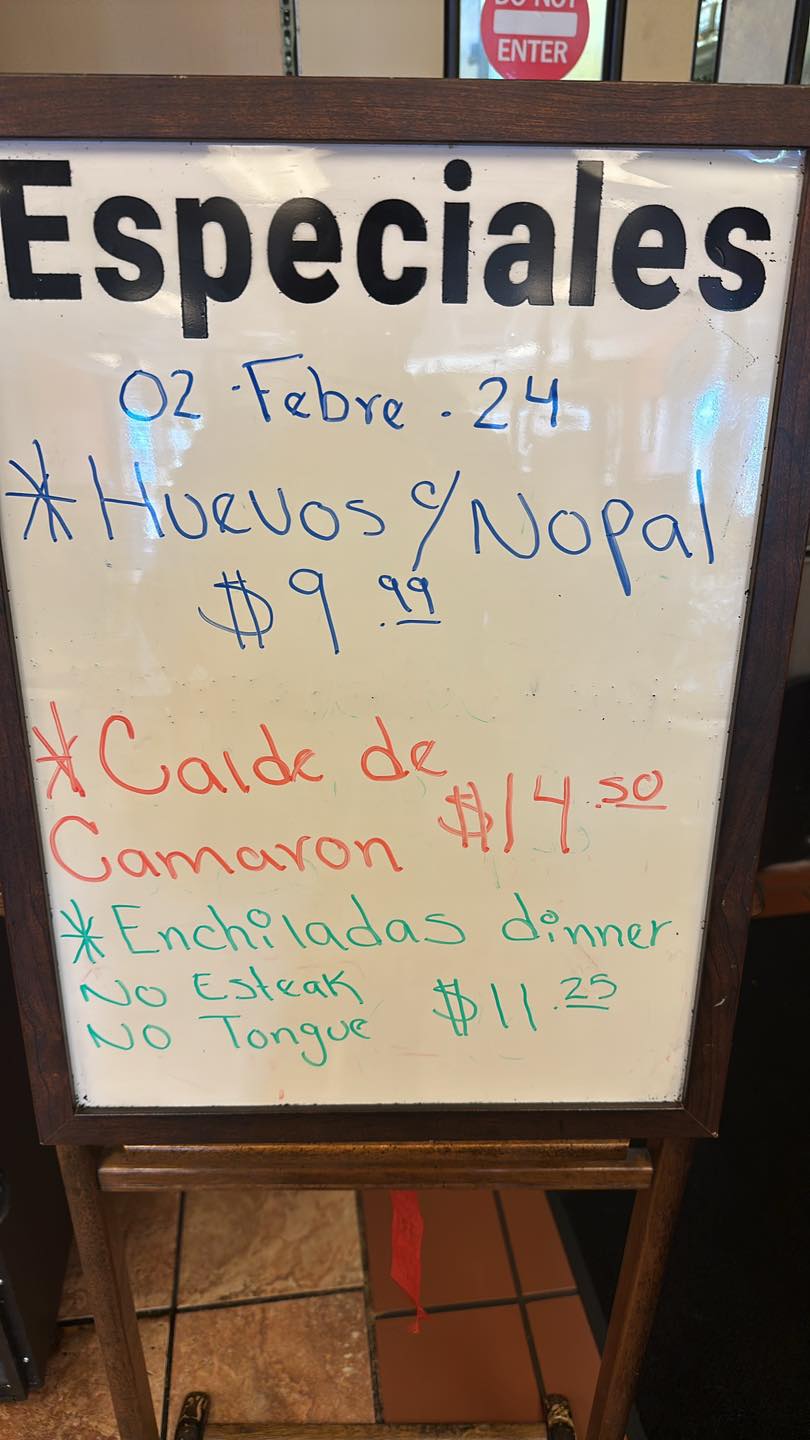 DO NOT
ENTER
Especiales
02 · Febre · 24
* Huevos c/ Nopal
$9.99
* Calde de
Camaron $14.50
* Enchiladas dinner
No Esteak $11.25
No Tongue